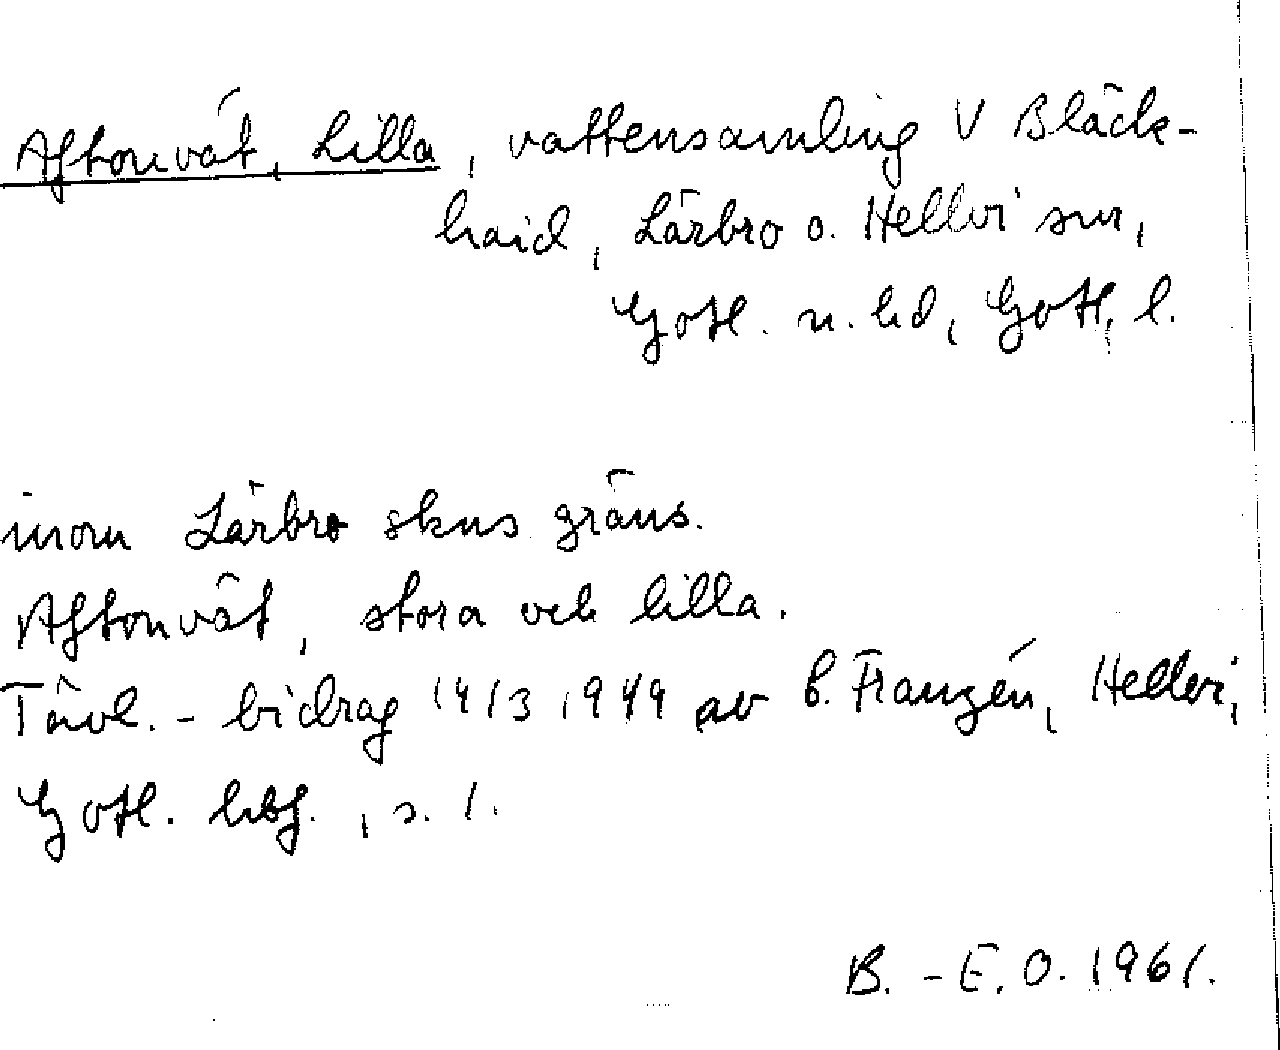 Aftonvät, Lilla, vattensamling V Bläck-
haid, Lärbro o. Hellvi snr,
Gotl. n. hd, Gotl. l.
inom Lärbro skns gräns.
Aftonvät, stora och lilla.
Tävl.-bidrag 14/3 1949 av B. Franzén, Hellvi,
Gotl. hbf., s. 1.
B.-E. O. 1961.